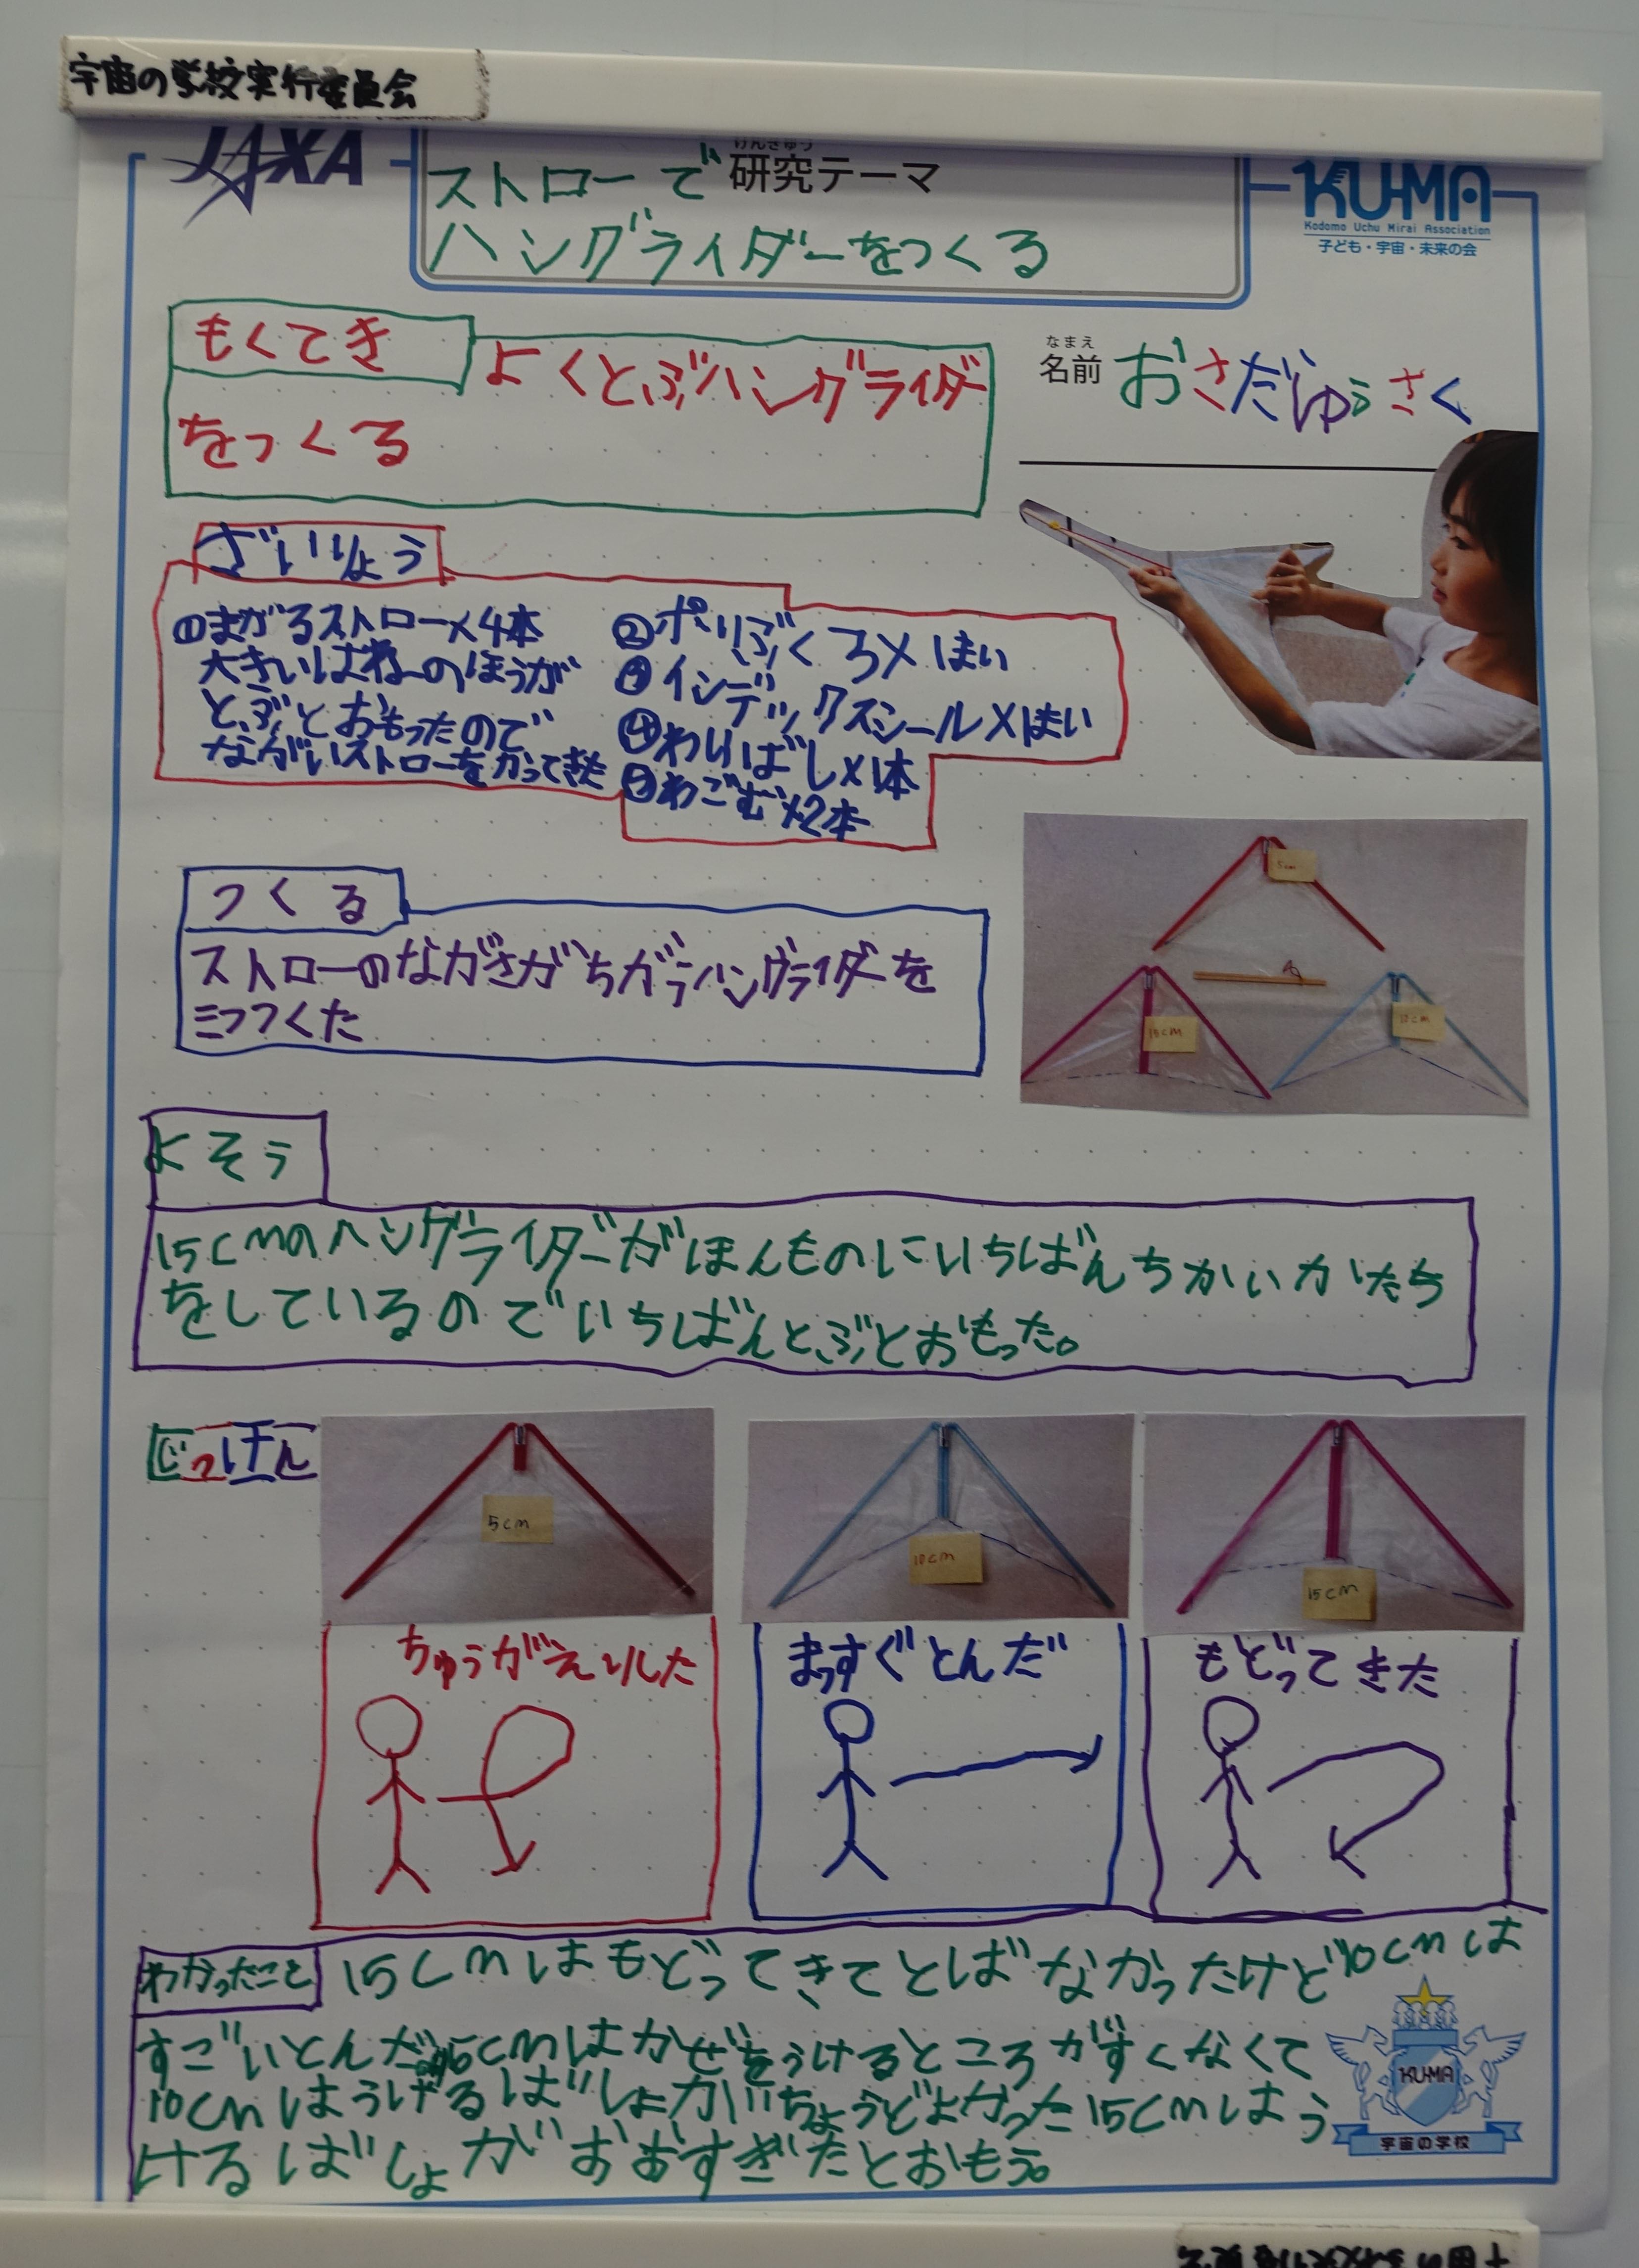 宇宙の学校実行委員会
JAXA
けんきゅう
研究テーマ
ストローで
ハングライダーをつくる
KU-MA
Kodomo Uchu Mirai Association
子ども・宇宙・未来の会
もくてき
よくとぶハングライダー
をつくる
なまえ
名前 おさだじゅうさく
ざいりょう
①まがるストロー×4本
大きいはねのほうが
とぶとおもったので
ながいストローをかってきた
②ポリぶくろ×1まい
③インデックスシール×1まい
④わりばし×1本
⑤わごむ×2本
5cm
15cm
10cm
つくる
ストローのながさがちがうハングライダーを
三つつくた
よそう
15cmのハングライダーがほんものにいちばんちかいかたち
をしているのでいちばんとぶとおもった。
じっけん
5cm
10cm
15cm
ちゅうがえりした
まっすぐとんだ
もどってきた
わかったこと
15cmはもどってきてとばなかったけど10cmは
すごいとんだ 5cmはかぜをうけるところがすくなくて
10cmはうけるばしょがちょうどよかった15cmはう
けるばしょがおおすぎたとおもう。
KU-MA
宇宙の学校